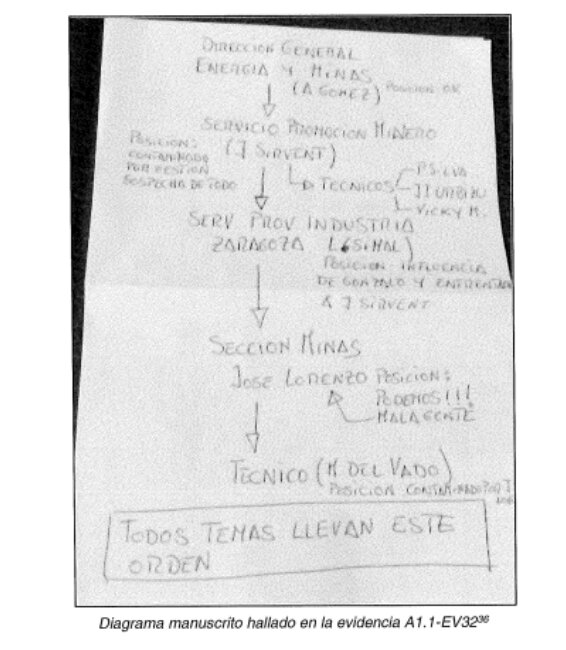 DIRECCION GENERAL
ENERGIA Y MINAS
(A GOMEZ) POSICION OK
SERVICIO PROMOCION MINERO
(J SIRVENT)
POSICION:
CONTAMINADO
POR GESTION
SOSPECHO DE TODO
TECNICOS
P SILVA
VICKY M.
SERV PROV INDUSTRIA
ZARAGOZA L SIMAL)
POSICION INFLUENCIA
DE GONZALO Y ENFRENTADO
A J SIRVENT
SECCION MINAS
JOSE LORENZO POSICION:
PODEMOS!!!
MALA GENTE
TECNICO (M DEL VADO)
POSICION CONTAMINADO POR J
TODOS TEMAS LLEVAN ESTE
ORDEN
Diagrama manuscrito hallado en la evidencia A1.1-EV32³⁶